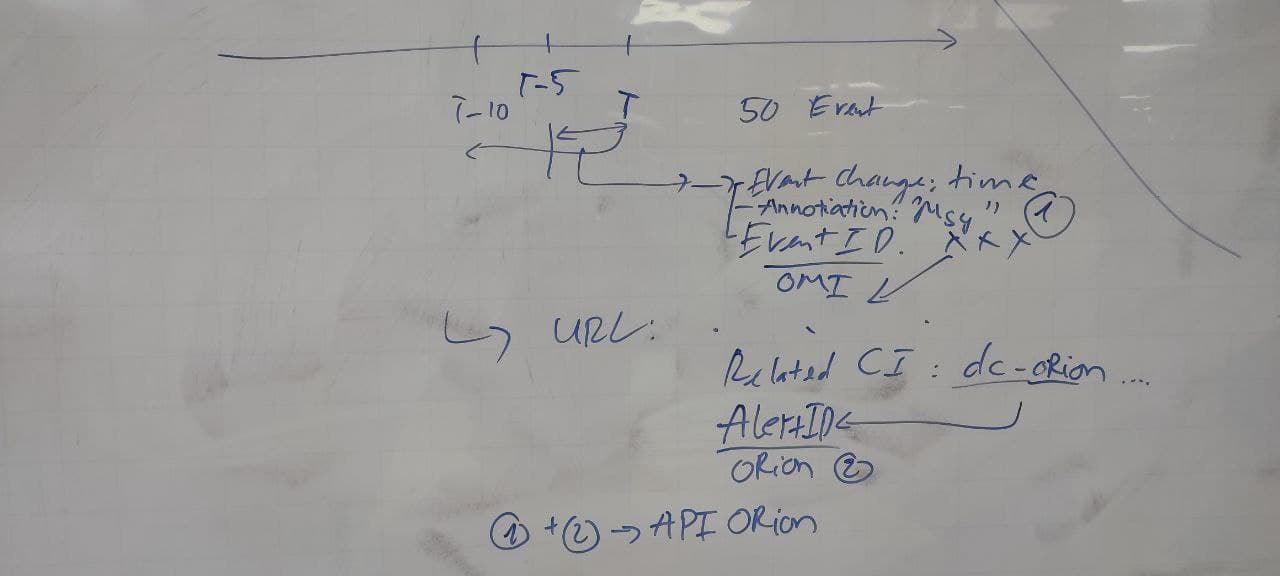 T-10 T-5 T
50 Event
Event change: time
- Annotiation: "Msg" ①
Event ID. x x x
OMI
URL:
Related CI : dc-ORion ....
AlertID
ORion ②
① + ② → API ORion